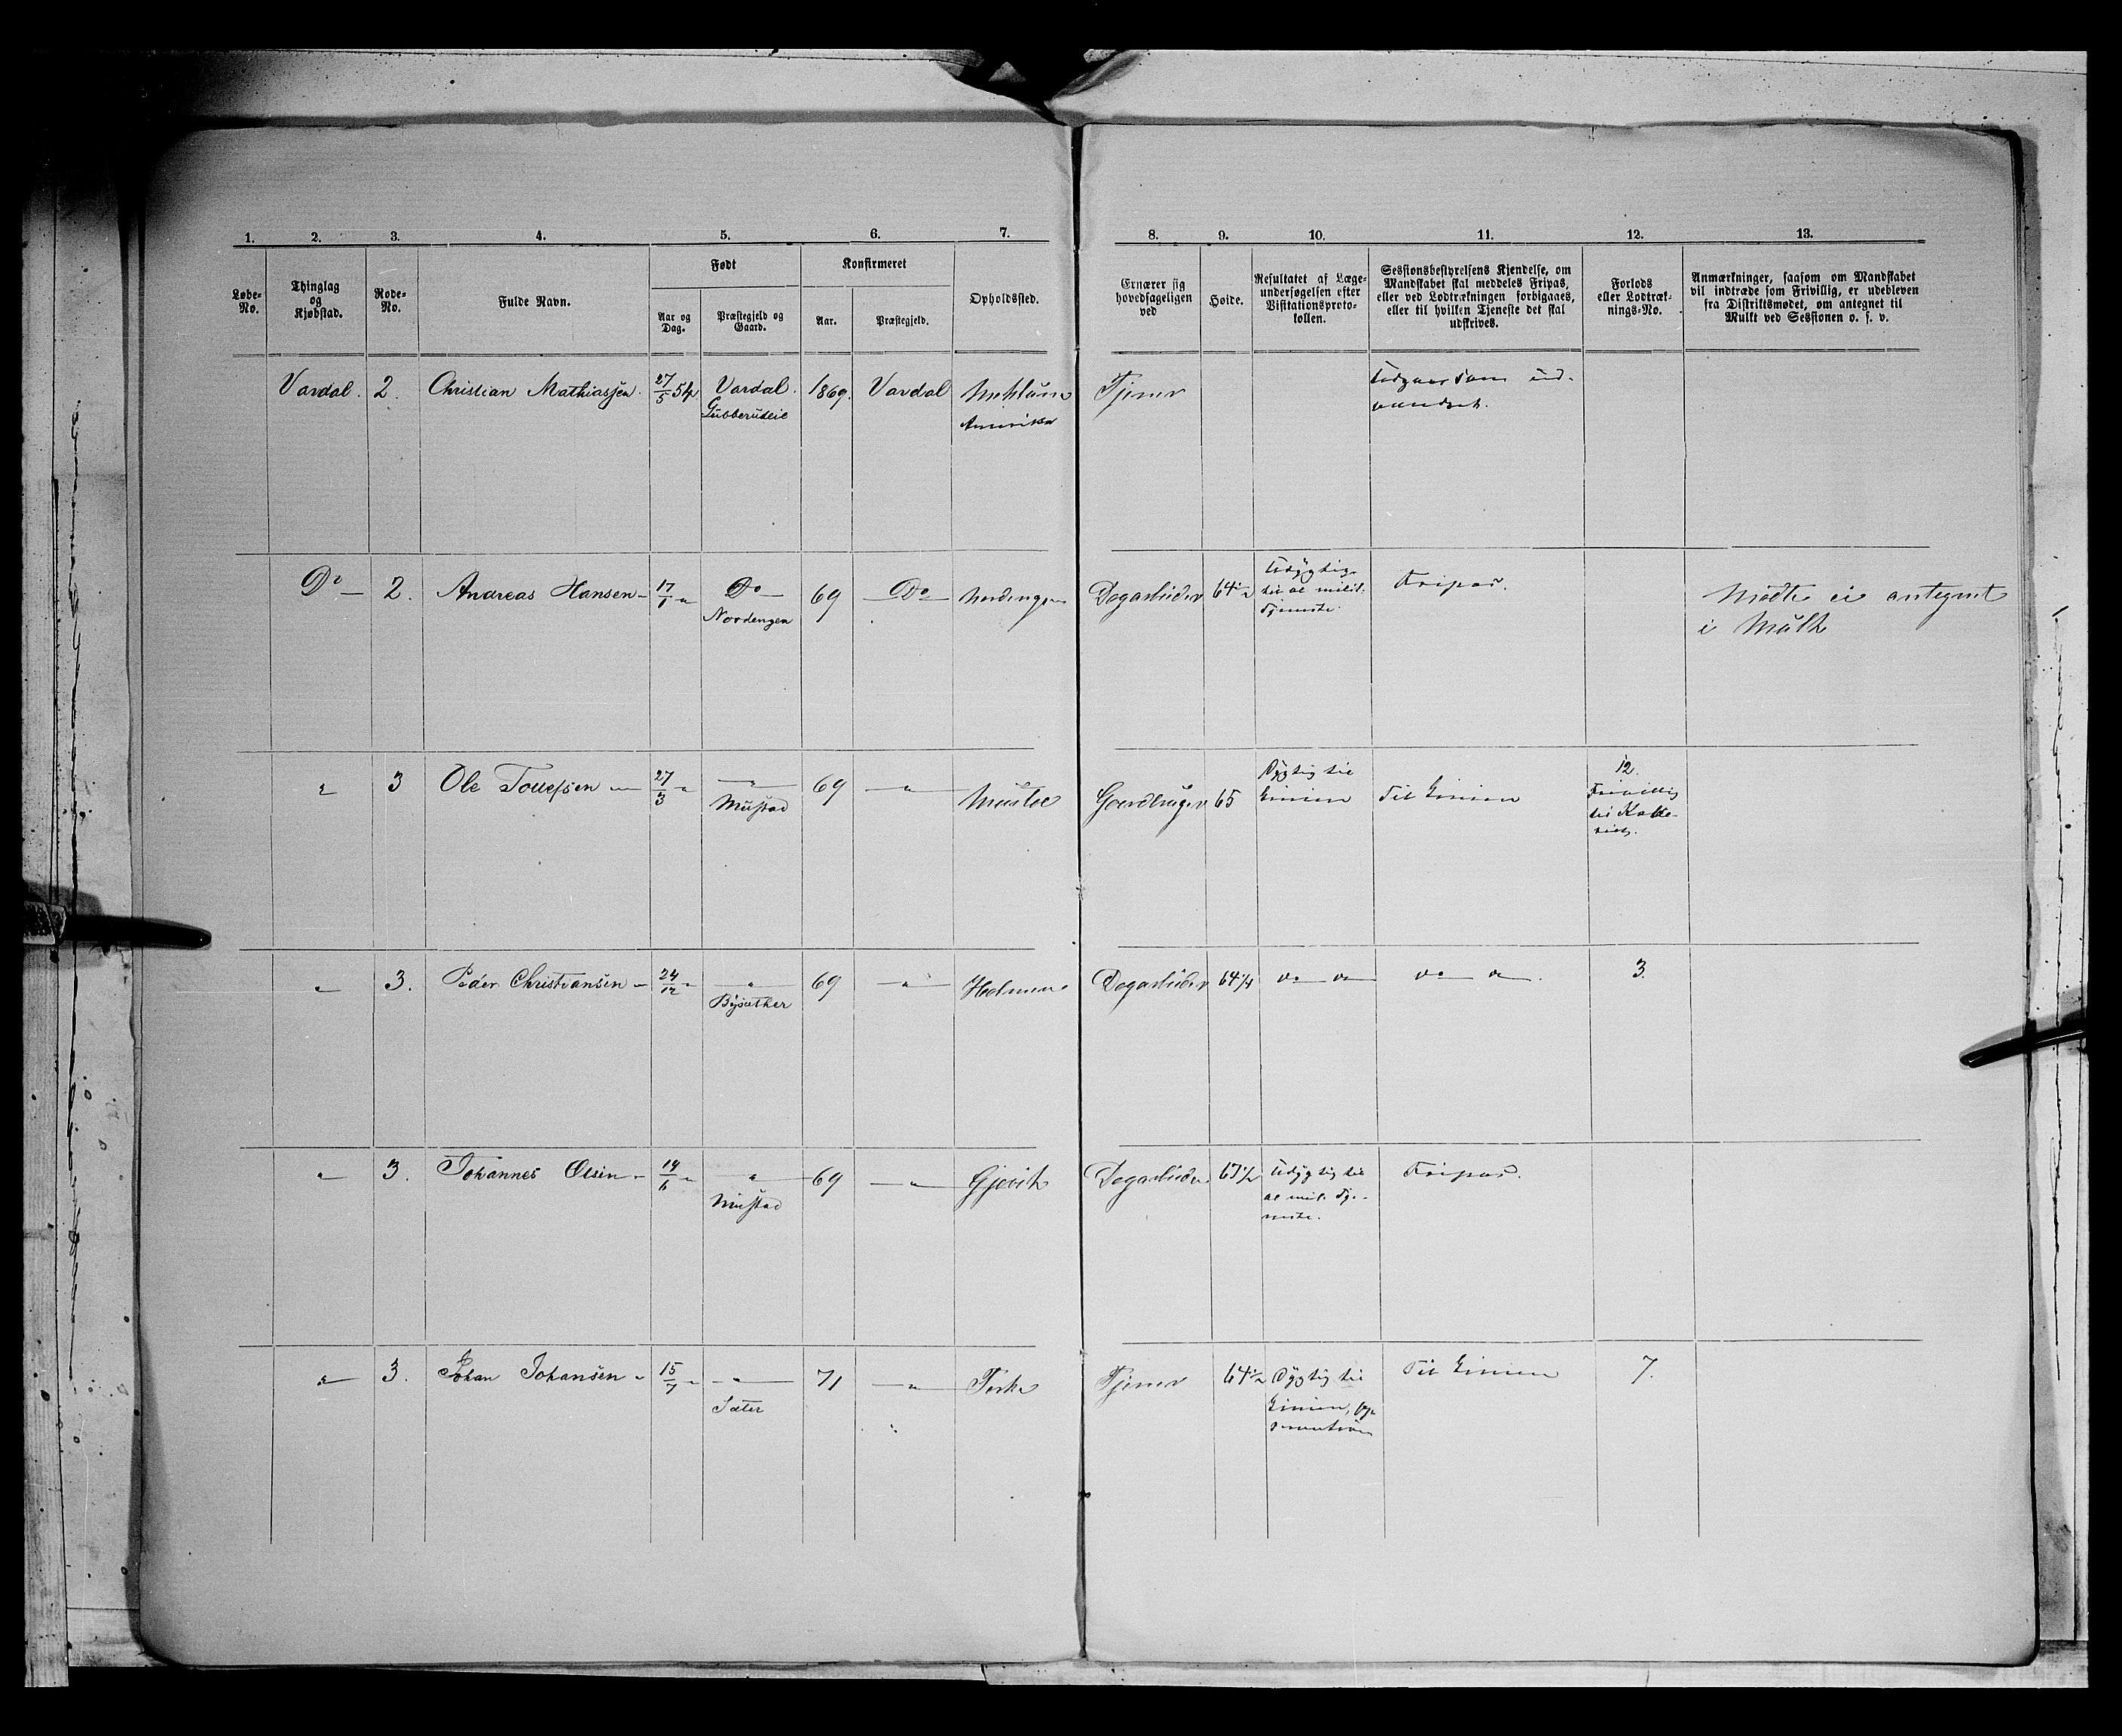 1. 2. 3. 4. 5. 6. 7. 8. 9. 10. 11. 12. 13.
Løbe-No.
Thinglag og Kjøbstad.
Rode-No.
Fulde Navn.
Født
Aar og Dag.
Præstegjeld og Gaard.
Konfirmeret
Aar.
Præstegjeld.
Opholdssted.
Ernærer sig hovedsageligen ved
Høide.
Resultatet af Læge-undersøgelsen efter Visitationsproto-kollen.
Sessionsbestyrelsens Kjendelse, om Mandskabet skal meddeles Fripas, eller ved Lodtrækningen forbigaaes, eller til hvilken Tjeneste det skal udskrives.
Forlods eller Lodtræk-nings-No.
Anmærkninger, saasom om Mandskabet vil indtræde som Frivillig, er udebleven fra Distriktsmødet, om antegnet til Mulkt ved Sessionen o. s. v.
Vardal. 2. Christian Mathiassen. 27/5 54 Vardal. 1869. Vardal Tjener Udgaar som ud-
Gubberudeie Amerika vandret.
Do 2. Andreas Hansen 17/1 " Do 69 Do Nordengen Dagarbeider 64 1/2 Udygtig Fripas. Mødte ei antegnet
Nordengen til al milit. Tjeneste. i Mulk
" 3 Ole Tollefsen 27/3 " " 69 " Gardbruger 65 Dygtig til Til Linien 12.
Mustad Linien Frivillig
" 3. Peder Christiansen 24/12 " " 69 " Holmen Dagarbeider 64 1/4 do do do do 3.
" 3. Johannes Olsen 14/6 " " 69 " Gjøvik Dagarbeider 67 1/2 Udygtig til Fripas.
Mustad al mil. Tje-
neste.
" 3. Johan Johansen 15/7 " " 71 " Tjener 64 1/2 Dygtig til Til Linien 7.
Sæter Linien,